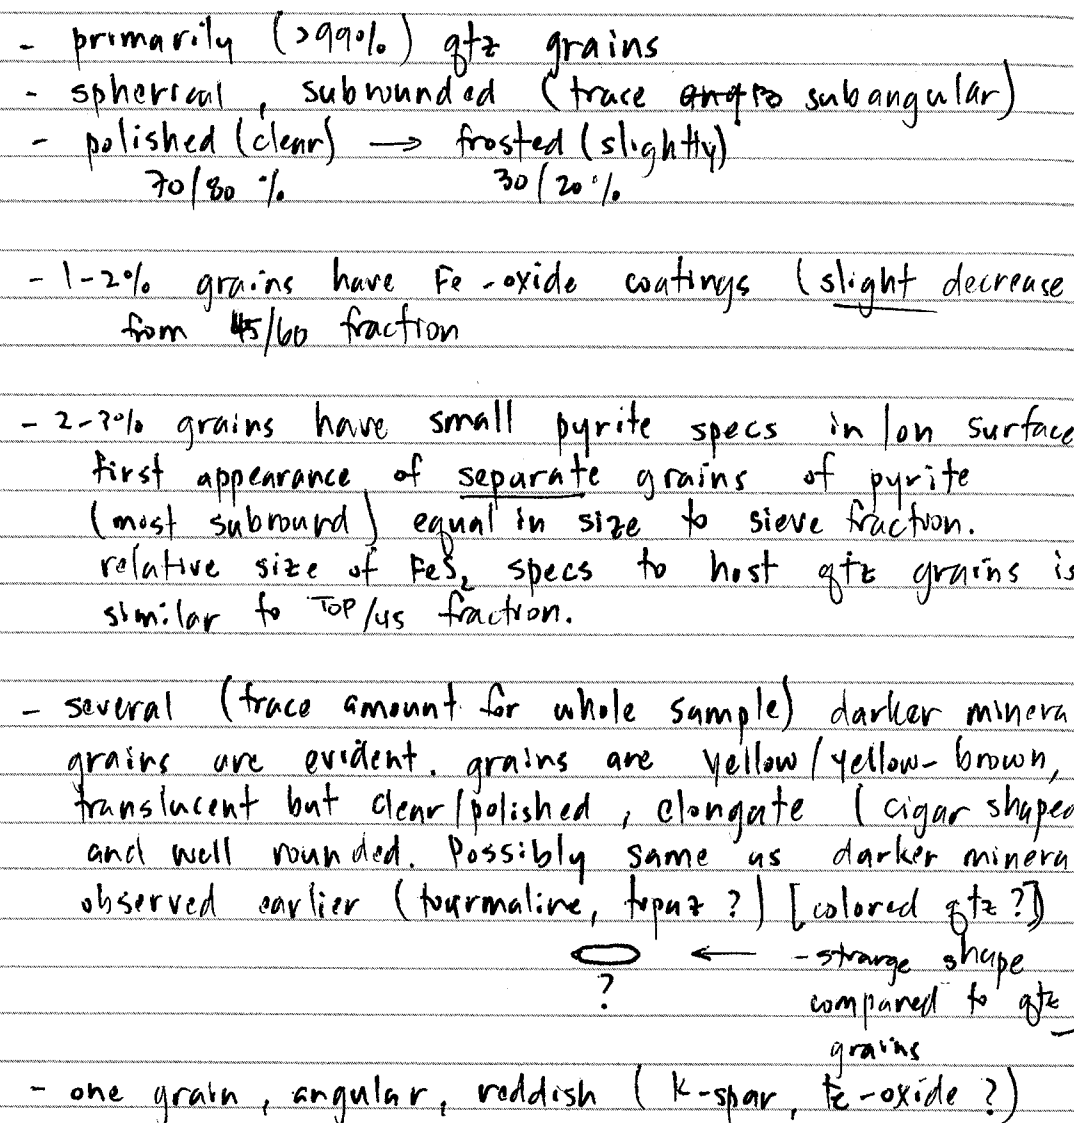 - primarily (>99%) qtz grains
- spherical, subrounded (trace subangular)
- polished (clear) → frosted (slightly)
70/80 % 30/20 %
- 1-2% grains have Fe-oxide coatings (slight decrease
from 45/60 fraction
- 2-3% grains have small pyrite specs in/on surface
first appearance of separate grains of pyrite
(most subround) equal in size to sieve fraction.
relative size of FeS2 specs to host qtz grains is
similar to TOP/45 fraction.
- several (trace amount for whole sample) darker minera
grains are evident. grains are yellow/yellow-brown,
translucent but clear/polished, elongate (cigar shaped
and well rounded. Possibly same as darker minera
observed earlier (tourmaline, topaz ?) [colored qtz ?]
← - strange shape
?
compared to qtz
grains
- one grain, angular, reddish (K-spar, Fe-oxide ?)